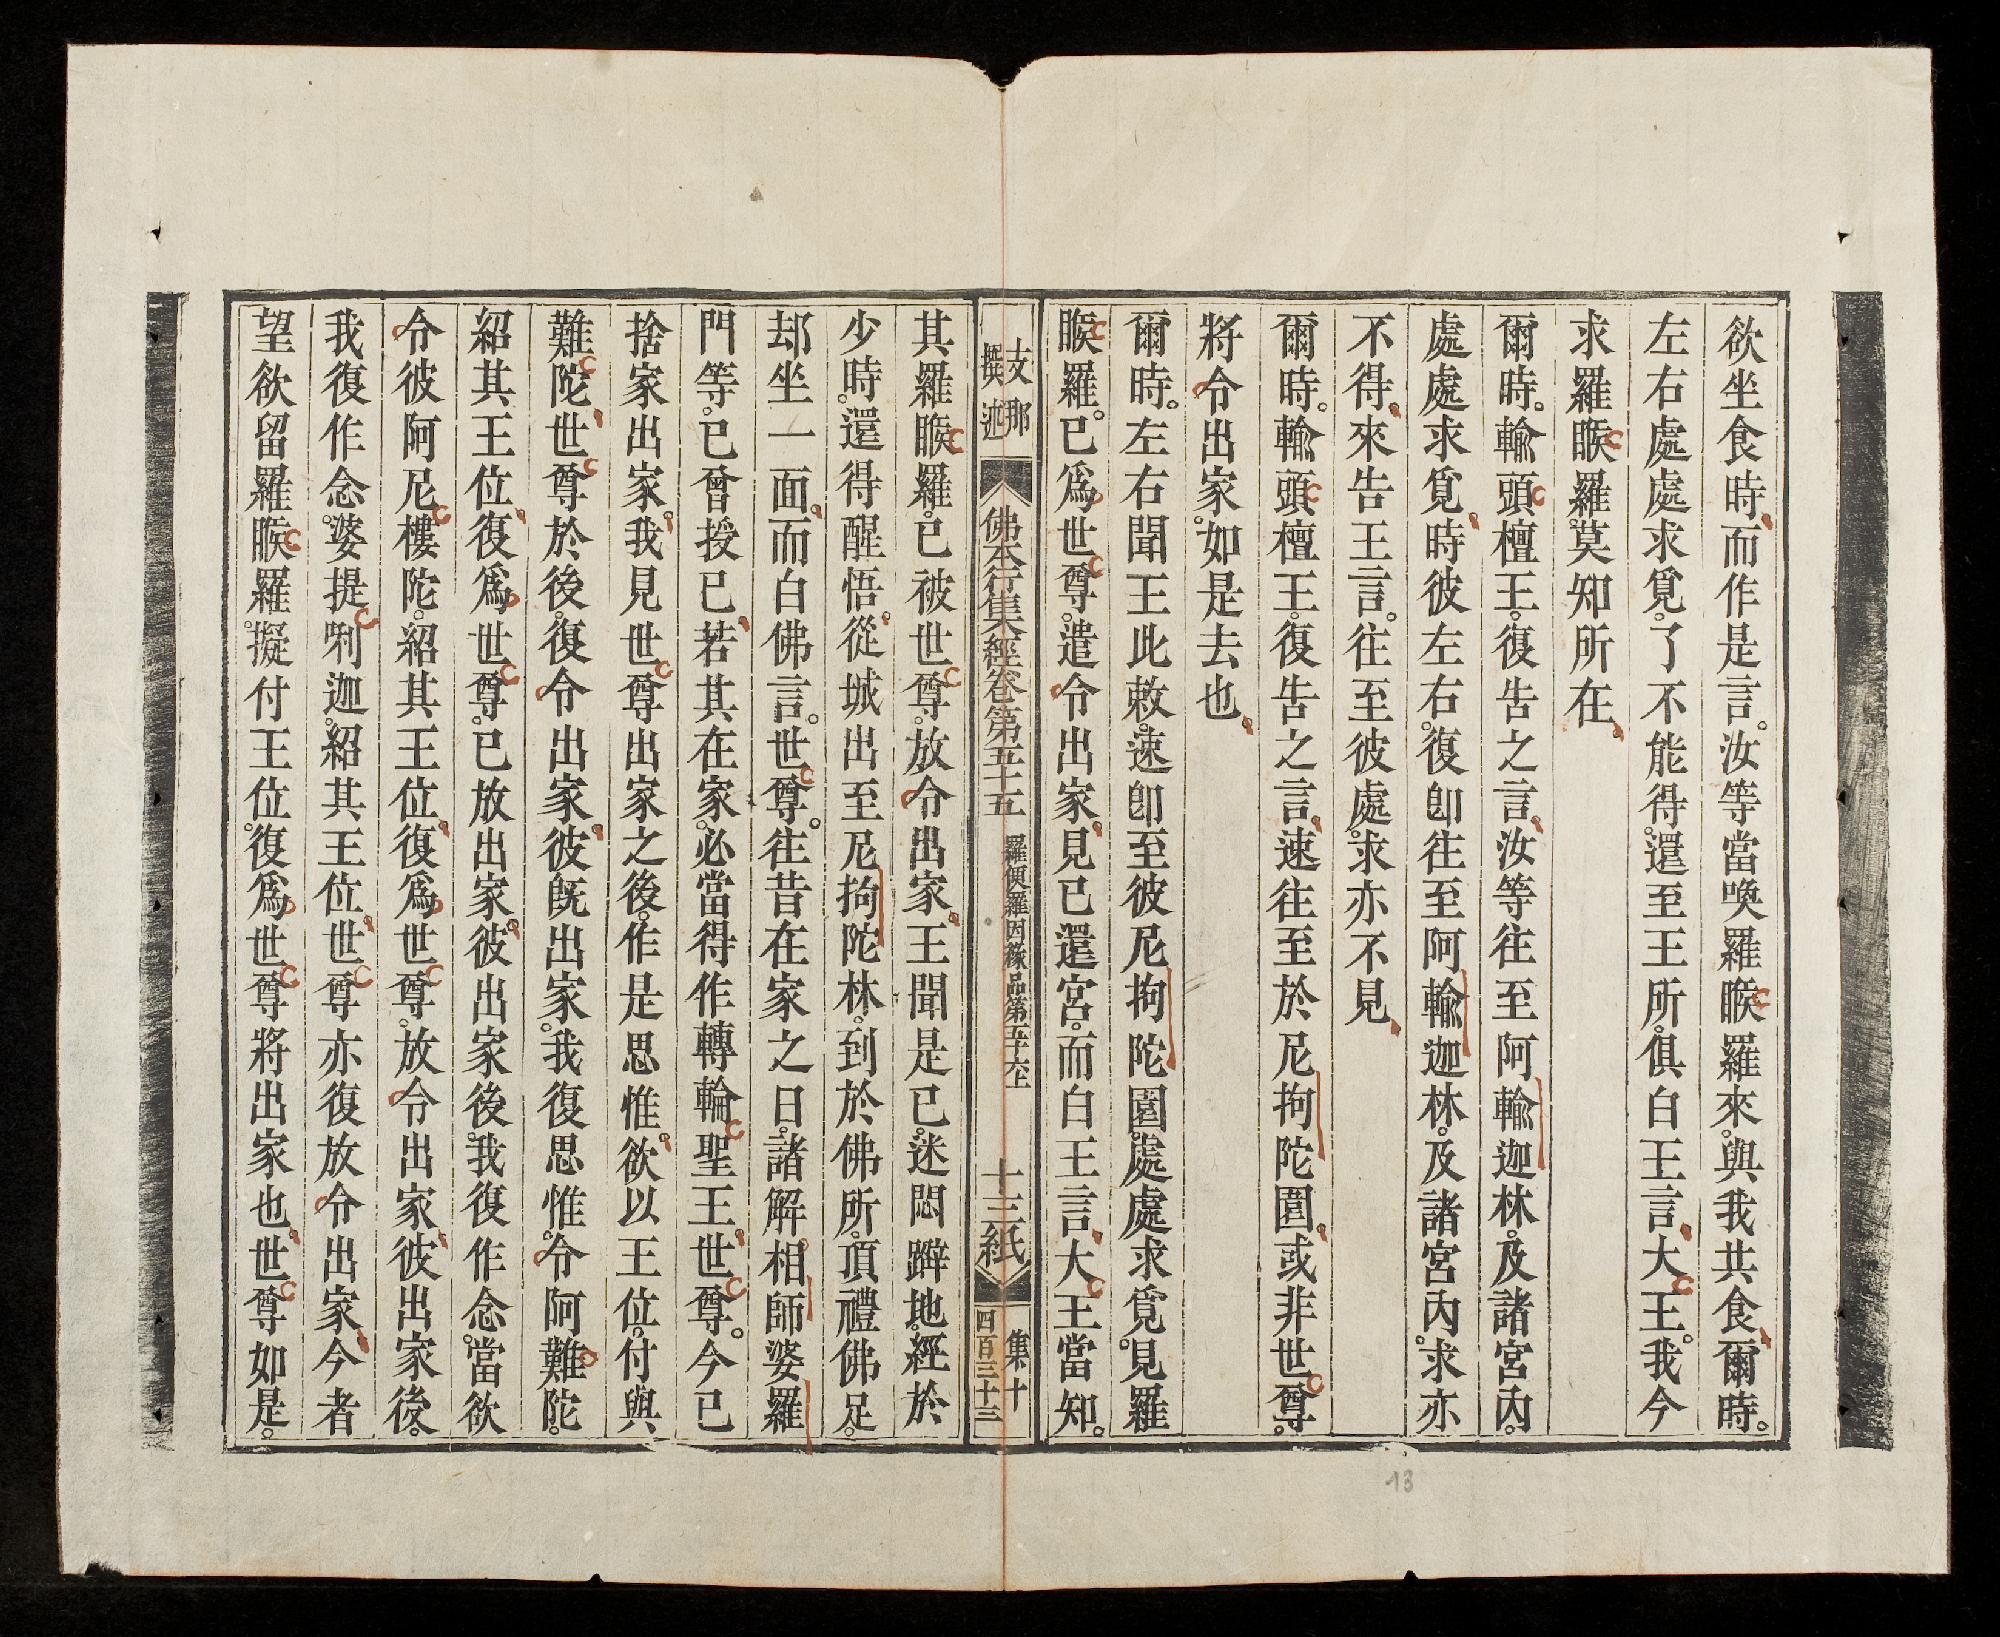 欲坐食時而作是言。汝等當喚羅睺羅來。與我共食爾時。
左右處處求覓。了不能得。還至王所。俱白王言大王。我今
求羅睺羅。莫知所在
爾時。輸頭檀王。復告之言。汝等往至阿輸迦林。及諸宮內。
處處求覓時彼左右。復卽往至阿輸迦林。及諸宮內。求亦
不得。來告王言。往至彼處。求亦不見
爾時。輸頭檀王。復告之言。速往至於尼拘陀園。或非世尊。
將令出家。如是去也
爾時。左右聞王此敕。速卽至彼尼拘陀園。處處求覓。見羅
睺羅。已爲世尊。遣令出家見已還宮。而白王言大王當知。
支那
撰述
佛本行集經卷第五十五
羅睺羅因緣品第五十六上
十三紙
集十
四百三十三
其羅睺羅。已被世尊。放令出家王聞是已。迷悶躃地。經於
少時。還得醒悟。從城出至尼拘陀林。到於佛所。頂禮佛足。
却坐一面而白佛言。世尊。往昔在家之日。諸解相師婆羅
門等。已曾授已若其在家。必當得作轉輪聖王世尊。今已
捨家出家。我見世尊出家之後。作是思惟。欲以王位。付與
難陀世尊於後。復令出家彼旣出家。我復思惟。令阿難陀。
紹其王位復爲世尊。已放出家彼出家後。我復作念。當欲
令彼阿尼樓陀。紹其王位。復爲世尊。放令出家彼出家後。
我復作念。婆提唎迦。紹其王位世尊亦復放令出家今者
望欲留羅睺羅。擬付王位。復爲世尊將出家也世尊如是。
13